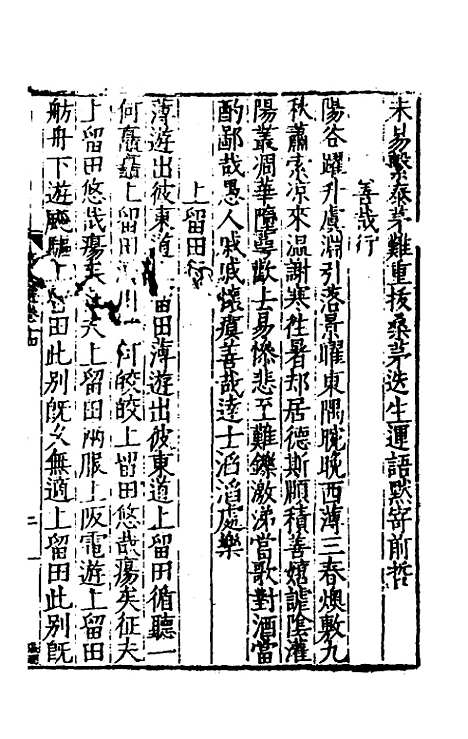 未易繫泰茅難重拔桑茅迭生運語默寄前哲
善哉行
陽谷躍升虞淵引落景曜東隅晼晚西薄三春燠敷九
秋蕭索凉來温謝寒徃暑却居德斯頤積善嬉謔隂灌
陽叢凋華墮萼歡去易慘悲至難鑠激涕當歌對酒當
酌鄙哉愚人戚戚懷瘼善哉達士滔滔處樂
上留田行
薄遊出彼東道留田薄遊出彼東道上留田循聽一
何矗矗上留田川一何皎皎上留田悠哉瘍矣征夫
上留田悠哉瘍矣夫上留田兩服上阪電遊上留田
舫舟下遊飈驅上留田此別旣久無適上留田此別旣
二